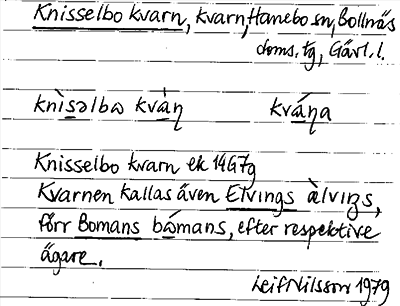 Knisselbo kvarn, kvarn, Hanebo sn, Bollnäs
doms. tg, Gävl. l.
knìsəlbω kvàɳ kváɳa
Knisselbo kvarn ek 14G7g
Kvarnen kallas även Elvings ὰlviŋs,
förr Bomans bómans, efter respektive
ägare.
Leif Nilsson 1979